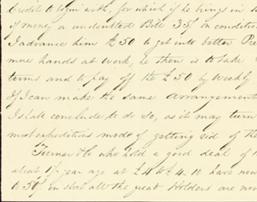 Credit to him with, for which if he brings in
of money a undoubted Bill 35/ in condition
I advance him £50 to get into better Pre
mises hands at work, he then is to take
terms and to pay off the £50 by Weekly
If I can make the same arrangement
I shall conclude to do so, as it may turn
most expeditious mode of getting rid of the
who hold a good deal of
about 1½ year ago at £4 @ £4.10 have now
to 50/ in short all the great Holders are